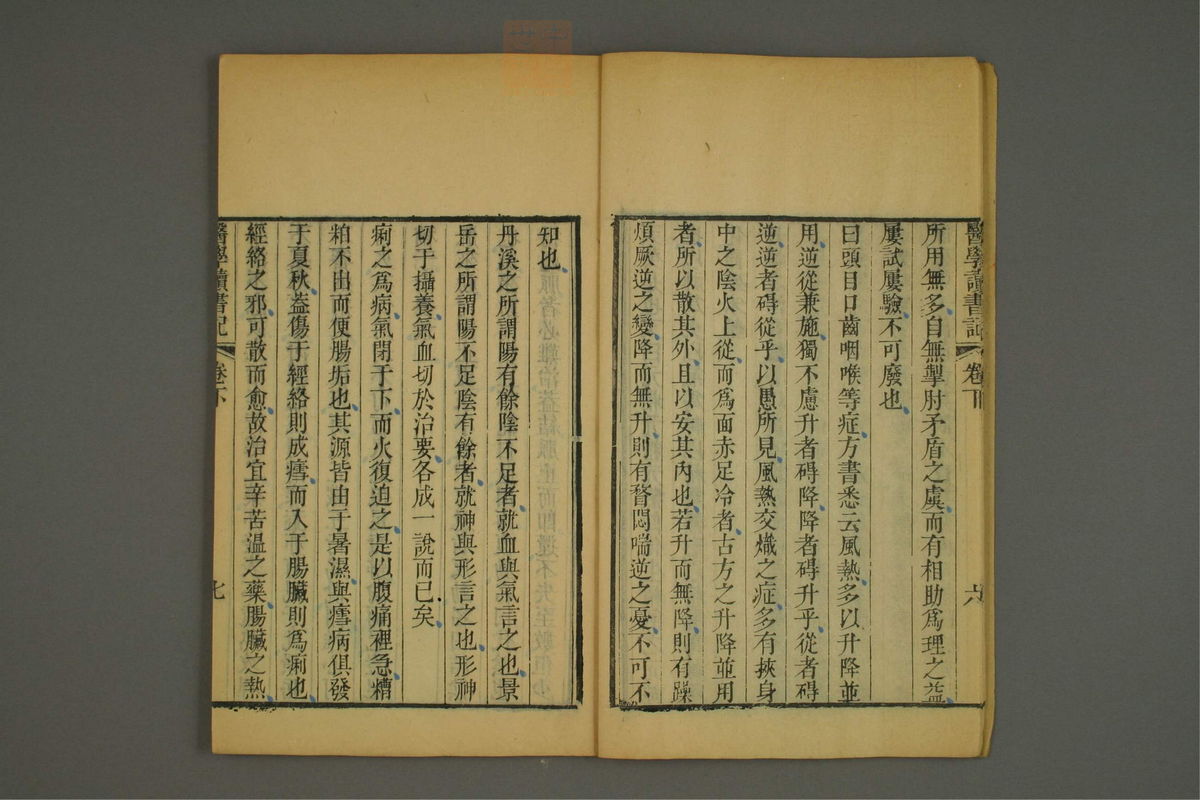 醫學讀書記 卷下 六
所用無多自無掣肘矛盾之虞而有相助爲理之益
屢試屢驗不可廢也
曰頭目口齒咽喉等症方書悉云風熱多以升降並
用逆從兼施獨不慮升者碍降降者碍升乎從者碍
逆逆者碍從乎以愚所見風熱交熾之症多有挾身
中之陰火上從而爲面赤足冷者古方之升降並用
者所以散其外且以安其內也若升而無降則有躁
煩厥逆之變降而無升則有瞀悶喘逆之憂不可不
知也
丹溪之所謂陽有餘陰不足者就血與氣言之也景
岳之所謂陽不足陰有餘者就神與形言之也形神
切于攝養氣血切於治要各成一說而已矣
痢之爲病氣閉于下而火復迫之是以腹痛裡急糟
粕不出而便腸垢也其源皆由于暑濕與瘧病俱發
于夏秋葢傷于經絡則成瘧而入于腸臟則爲痢也
經絡之邪可散而愈故治宜辛苦溫之藥腸臟之熱
醫學讀書記 卷下 七